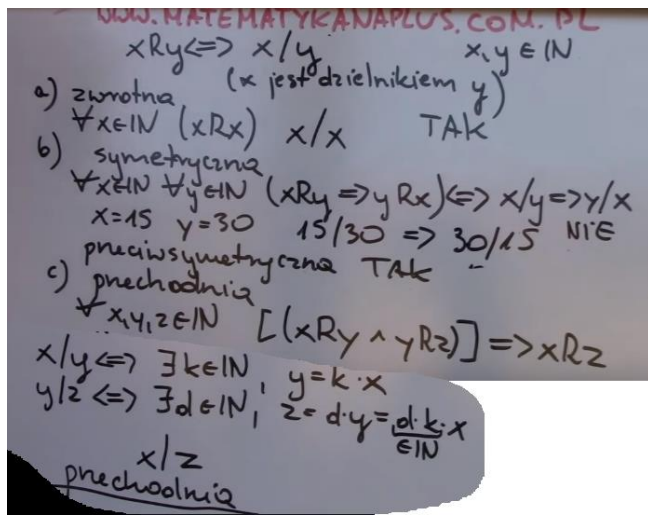 WWW.MATEMATYKANAPLUS.COM.PL
xRy<=> x/y x,y ∈ IN
(x jest dzielnikiem y)
a) zwrotna
∀x∈IN (xRx) x/x TAK
b) symetryczna
∀x∈IN ∀y∈IN (xRy => yRx) <=> x/y => y/x
x=15 y=30 15/30 => 30/15 NIE
przeciwsymetryczna TAK
c) przechodnia
∀x,y,z∈IN [(xRy ^ yRz)] => xRz
x/y <=> ∃k∈IN; y=k·x
y/z <=> ∃d∈IN; z=d·y=d·k·x
∈IN
x/z
przechodnia